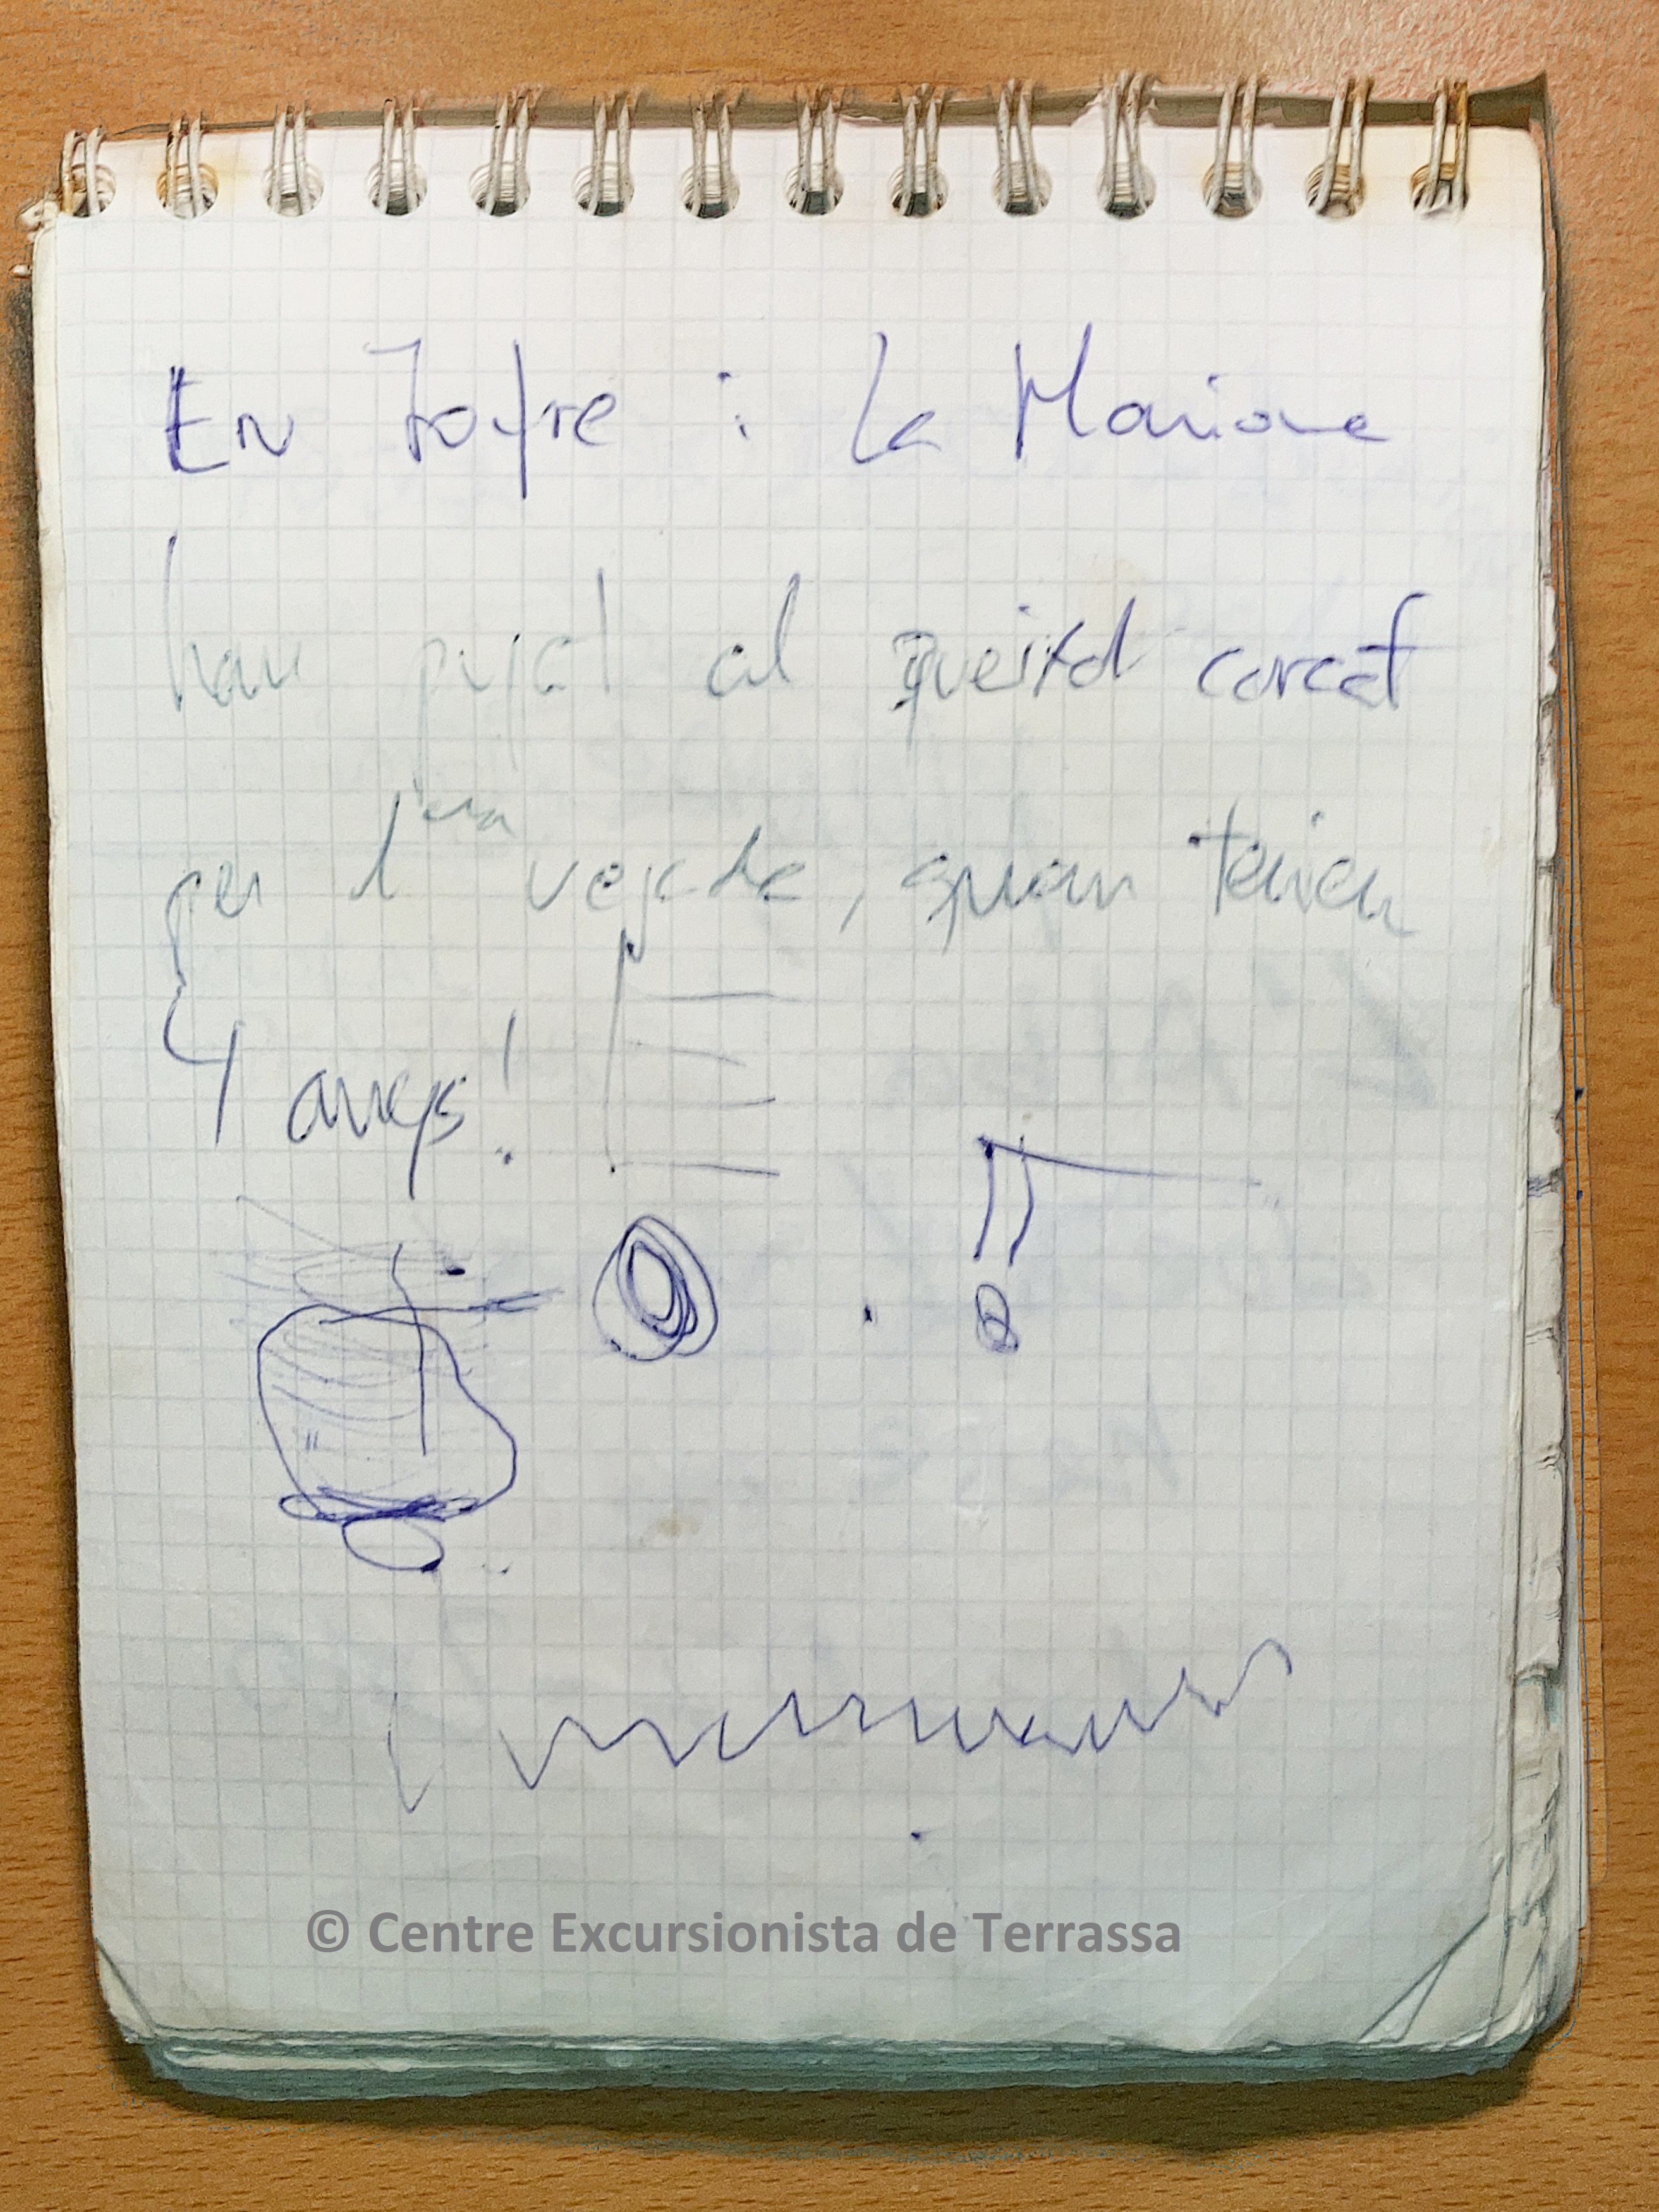 En Jofre i la Mariona
han pujat al queixal corcat
per 1era vegada, quan tenien
4 anys!
© Centre Excursionista de Terrassa